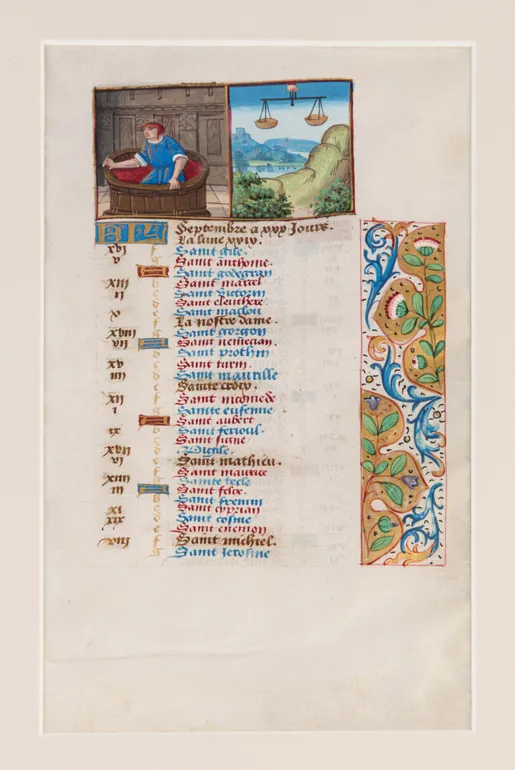 KL Septembre a xxx Jours.
La lune xxix.
xvi Saint gile.
v Saint anthoine
Saint godegran
xiii Saint marcel
ii Saint victorin
Saint eleuthere
x Saint maglou
La nostre dame.
xviii Saint gorgon
vii Saint nemesian
Saint prothin
xv Saint turin
iiii Saint maurille
Sainte croix.
xii Saint nichomede
i Sainte eufemie
Saint aubert
ix Saint ferioul
Saint signe
xvii Vigile
vi Saint mathieu.
Saint maurice
xiiii Sainte tecle
iii Saint felix
Saint fremin
xi Saint cyprian
xix Saint cosme
Saint enemon
viii Saint michiel.
Saint jerosme